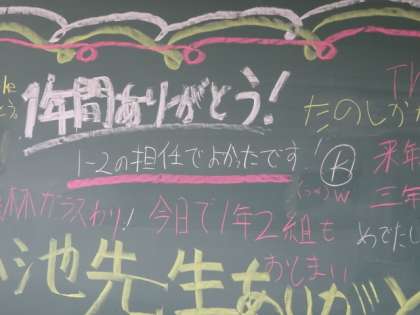 1年間ありがとう!
たのしか
1-2の担任でよかたです!
来年
三年
ガラスわり! 今日で1年2組も
おしまい
w
めでたい
池先生ありがと